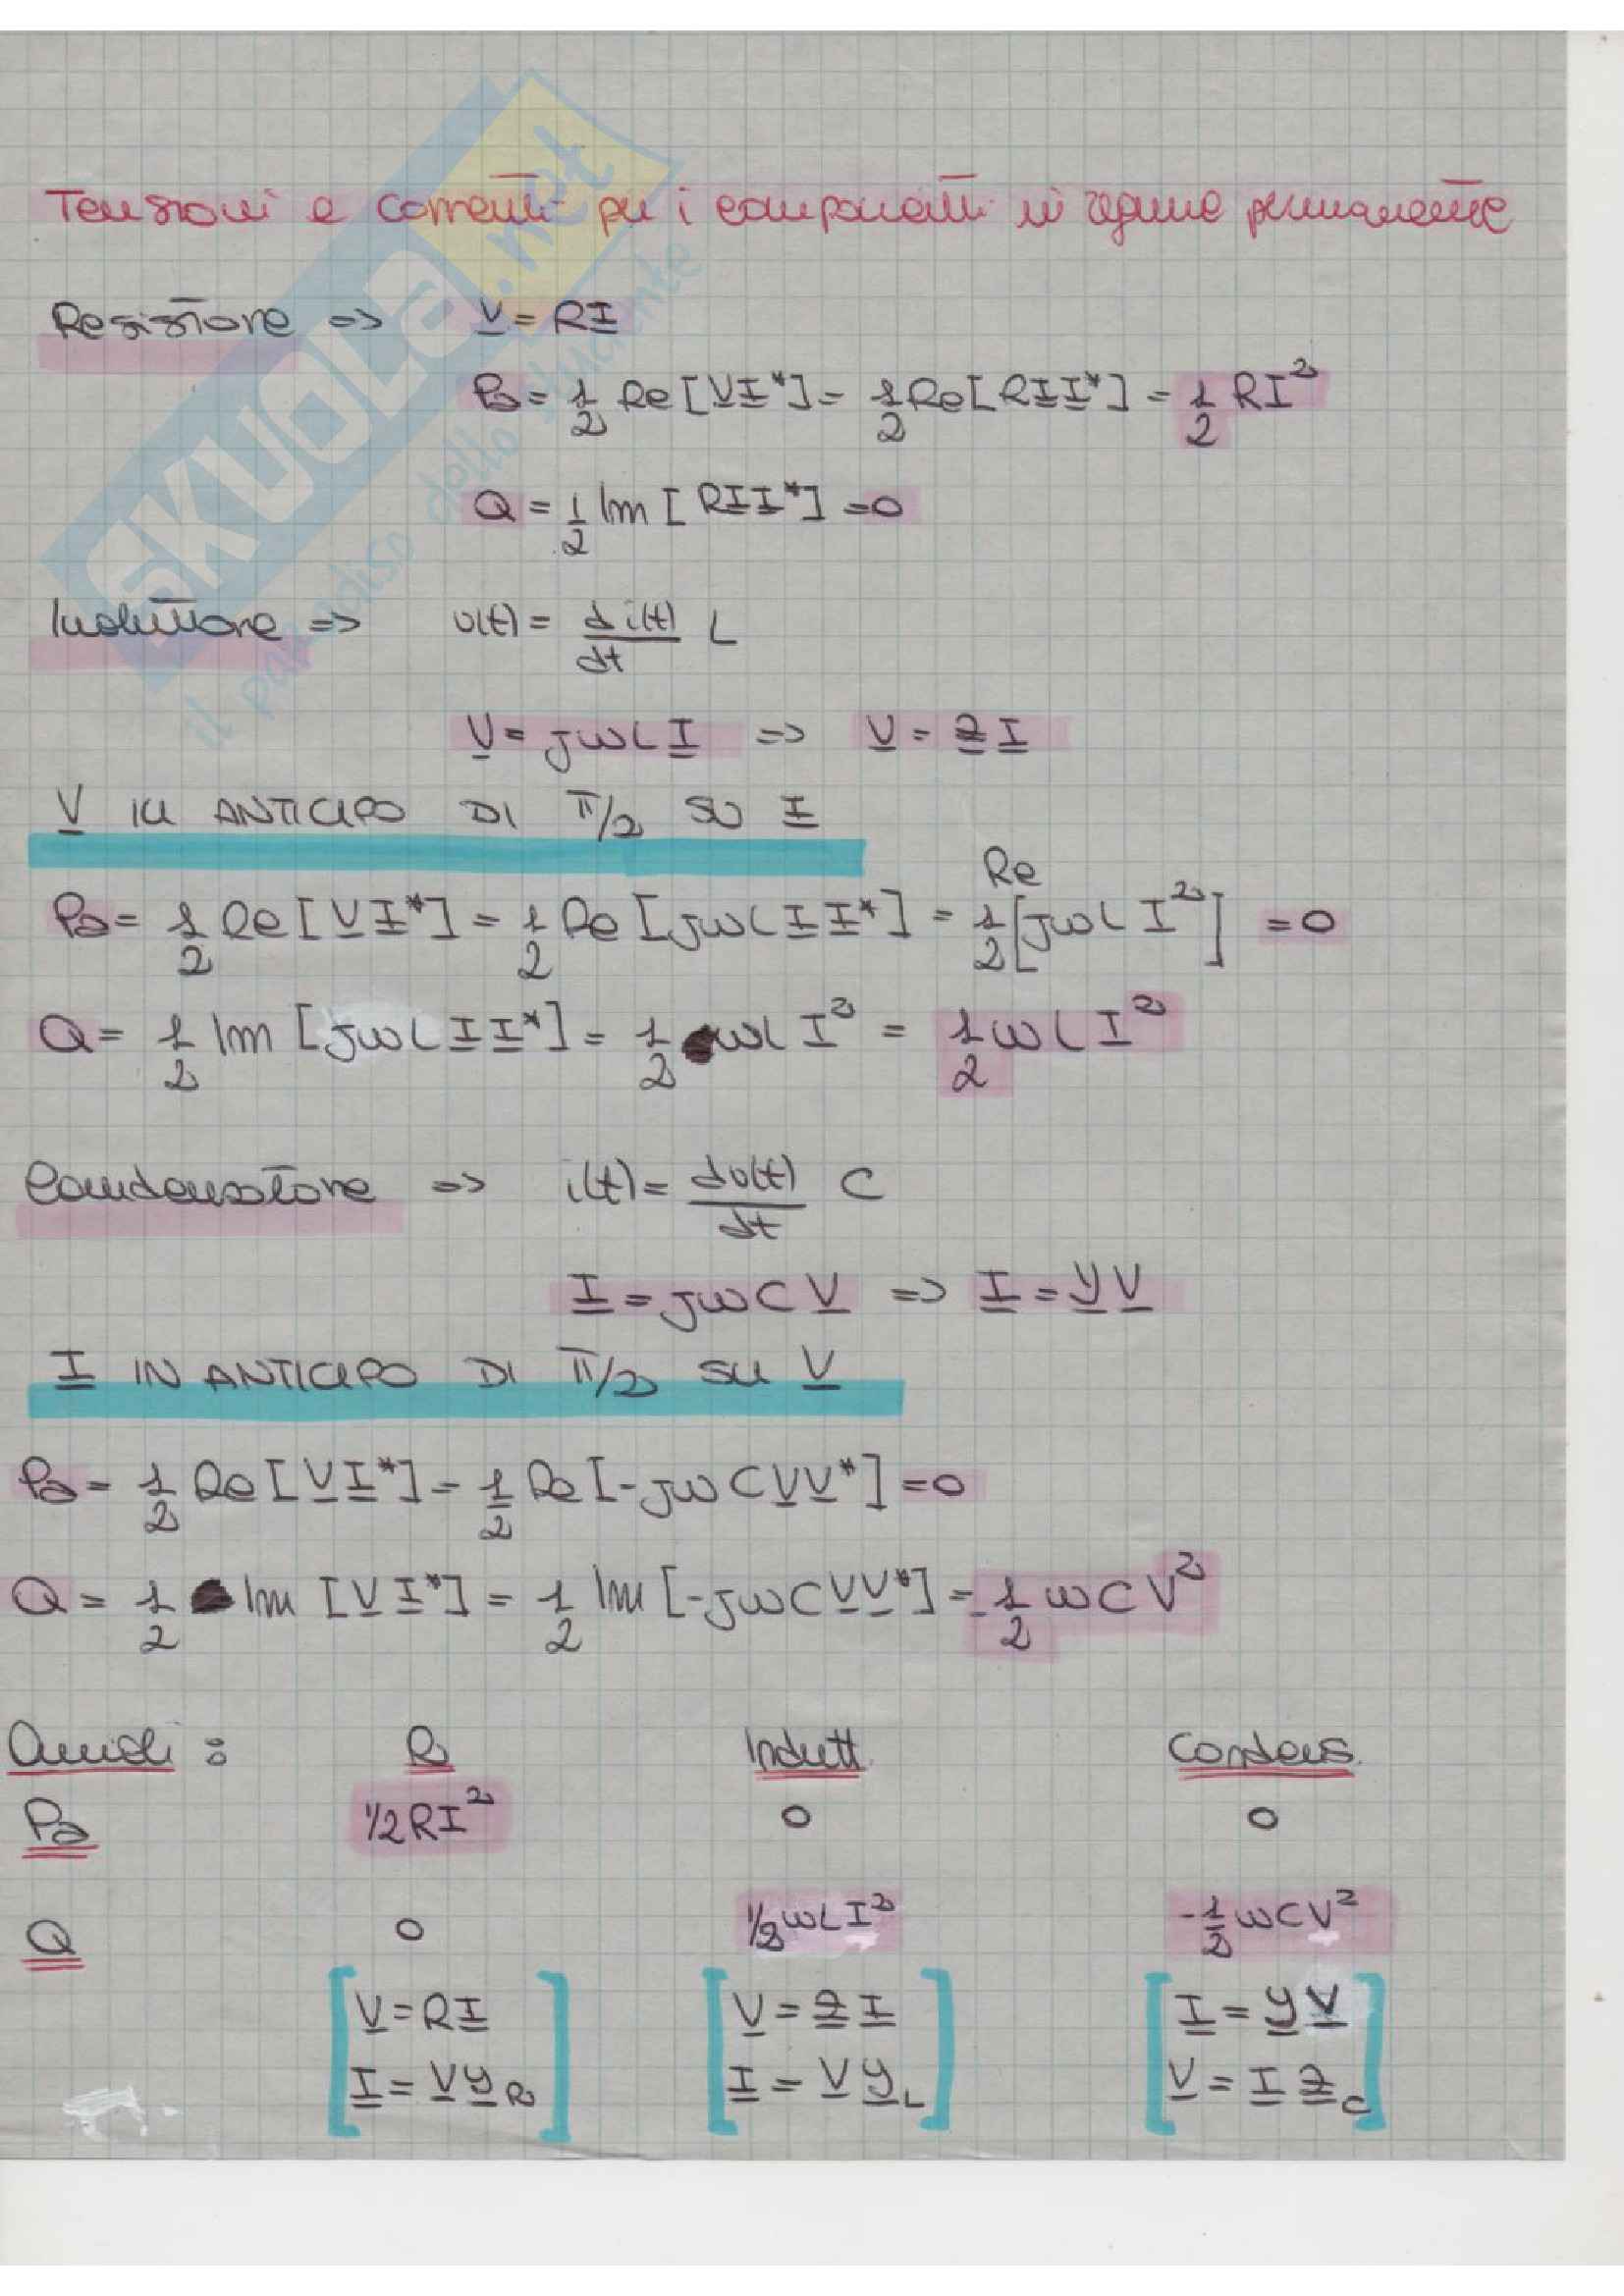 SKUOLA.net
il paradiso dello studente
Tensioni e correnti per i componenti in regime permanente
Resistore => V = RI
Pa = 1/2 Re[VI*] = 1/2 Re[RII*] = 1/2 RI²
Q = 1/2 Im[RII*] = 0
Induttore => v(t) = di(t)/dt L
V = jωLI => V = ZI
V IN ANTICIPO DI π/2 SU I
Pa = 1/2 Re[VI*] = 1/2 Re[jωLII*] = 1/2 Re[jωLI²] = 0
Q = 1/2 Im[jωLII*] = 1/2 ωLI² = 1/2 ωLI²
Condensatore => i(t) = dv(t)/dt C
I = jωCV => I = yV
I IN ANTICIPO DI π/2 SU V
Pa = 1/2 Re[VI*] = 1/2 Re[-jωCVV*] = 0
Q = 1/2 Im[VI*] = 1/2 Im[-jωCVV*] = -1/2 ωCV²
Quindi: R Indutt. Condens.
Pa 1/2RI² 0 0
Q 0 1/2ωLI² -1/2ωCV²
[V = RI [V = ZI [I = yV
I = VyR] I = VyL] V = IZC]